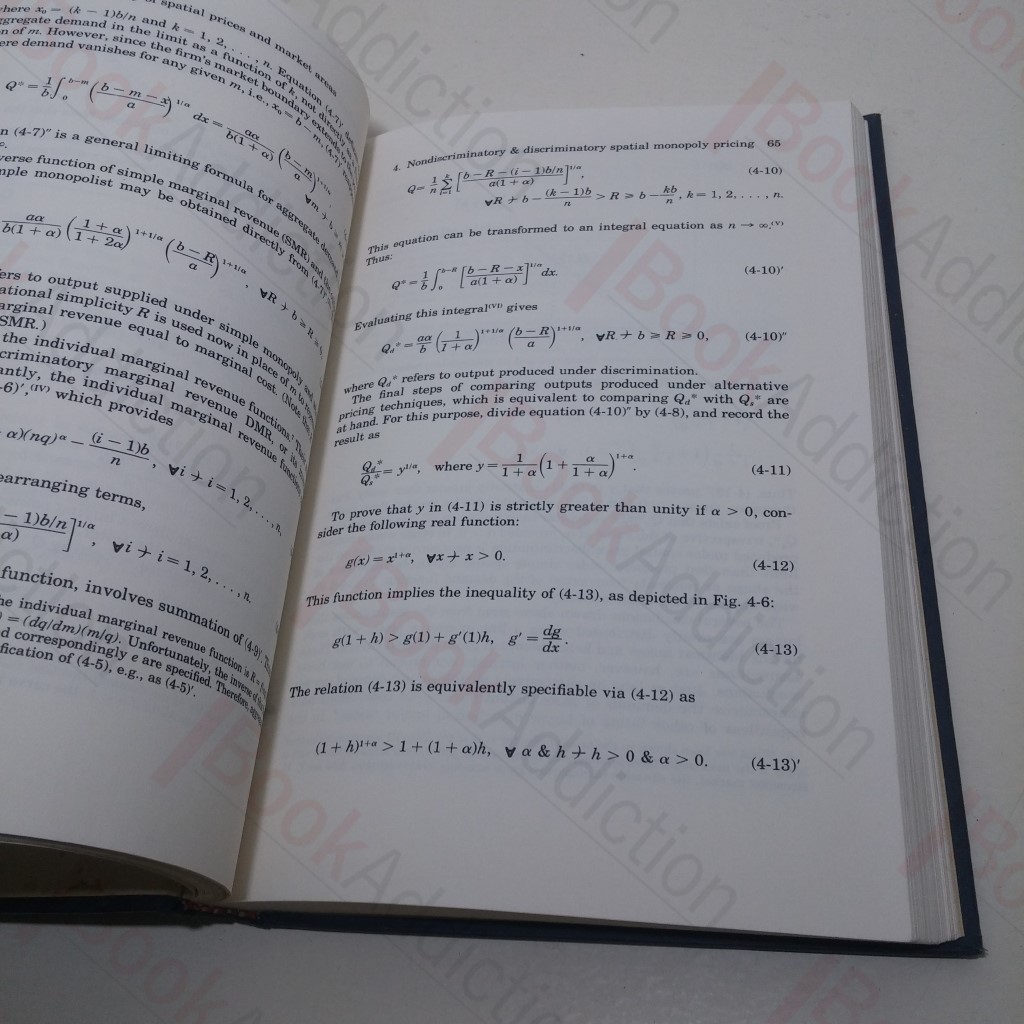 of spatial prices and market areas
where x₀ = (k − 1)b/n and k = 1, 2, . . . , n. Equation (4-7),
aggregate demand in the limit as a function of k, not directly
n of m. However, since the firm's market boundary extends
ere demand vanishes for any given m, i.e., x₀ = b − m, (4-7)′
Q* = 1/b ∫₀^{b−m} ((b − m − x)/a)^{1/α} dx = aα/(b(1 + α)) ((b − m)/a)^{1+1/α}, ∀m
n (4-7)″ is a general limiting formula for aggregate demand
verse function of simple marginal revenue (SMR) and the
mple monopolist may be obtained directly from (4-7)″
aα/(b(1 + α)) ((1 + α)/(1 + 2α))^{1+1/α} ((b − R)/a)^{1+1/α}, ∀R ∍ b ≥ R ≥
ers to output supplied under simple monopoly and
ational simplicity R is used now in place of m to
arginal revenue equal to marginal cost. (Note
SMR.)
the individual marginal revenue functions.
criminatory marginal revenue DMR, or its
antly, the individual marginal revenue function
-6)′,(IV) which provides
α)(nq)^α − (i − 1)b/n, ∀i ∍ i = 1, 2, . . . , n.
earranging terms,
− 1)b/n]^{1/α}
α)
, ∀i ∍ i = 1, 2, . . . , n.
function, involves summation of (4-9)′.
he individual marginal revenue function is R =
) = (dq/dm)(m/q). Unfortunately, the inverse of
d correspondingly e are specified. Therefore,
fication of (4-5), e.g., as (4-5)′.
4. Nondiscriminatory & discriminatory spatial monopoly pricing 65
Q = 1/n Σ_{i=1}^{k} [(b − R − (i − 1)b/n)/(a(1 + α))]^{1/α}, (4-10)
∀R ∍ b − (k − 1)b/n > R ≥ b − kb/n, k = 1, 2, . . . , n.
This equation can be transformed to an integral equation as n → ∞.(V)
Thus:
Q* = 1/b ∫₀^{b−R} [(b − R − x)/(a(1 + α))]^{1/α} dx. (4-10)′
Evaluating this integral(VI) gives
Q_d* = aα/b (1/(1 + α))^{1+1/α} ((b − R)/a)^{1+1/α}, ∀R ∍ b ≥ R ≥ 0, (4-10)″
where Q_d* refers to output produced under discrimination.
The final steps of comparing outputs produced under alternative
pricing techniques, which is equivalent to comparing Q_d* with Q_s* are
at hand. For this purpose, divide equation (4-10)″ by (4-8), and record the
result as
Q_d*/Q_s* = y^{1/α}, where y = 1/(1 + α) (1 + α/(1 + α))^{1+α}. (4-11)
To prove that y in (4-11) is strictly greater than unity if α > 0, con-
sider the following real function:
g(x) = x^{1+α}, ∀x ∍ x > 0. (4-12)
This function implies the inequality of (4-13), as depicted in Fig. 4-6:
g(1 + h) > g(1) + g′(1)h, g′ = dg/dx. (4-13)
The relation (4-13) is equivalently specifiable via (4-12) as
(1 + h)^{1+α} > 1 + (1 + α)h, ∀ α & h ∍ h > 0 & α > 0. (4-13)′
BookAddiction